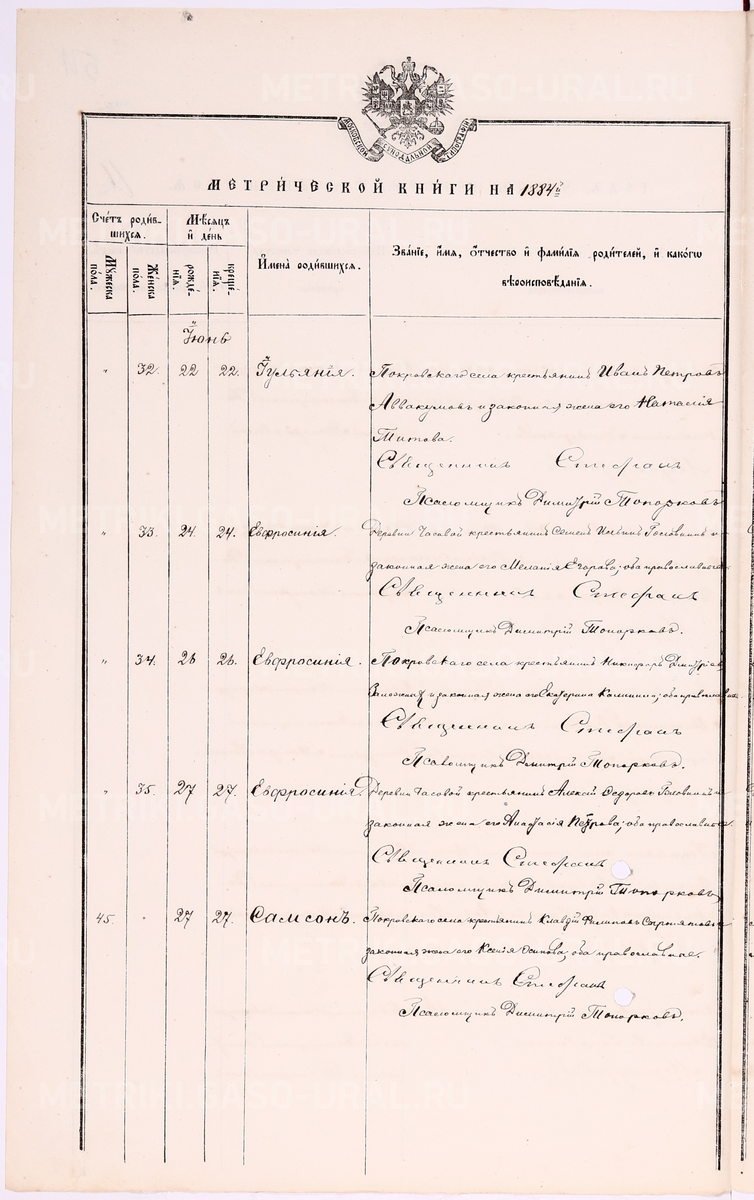 METRIKI.GASO-URAL.RU
МОСКОВСКОЙ СѴНОДАЛЬНОЙ ТИПОГРАФІИ
МЕТРИ́ЧЕСКОЙ КНИ́ГИ НА 1884й
Сче́тъ роди́вшихся.
Мѣ́сяцъ и҆ де́нь
И҆мена̀ роди́вшихся.
Зва́нїе, и҆́мя, ѻ҆́тчество и҆ фами́лїя роди́телей, и҆ како́гѡ вѣроисповѣ́данїя.
Му́жеска по́ла.
Же́нска по́ла.
рожде́нїя.
креще́нїя.
Іюнь
" 32. 22 22. Іульянія. Покровскаго села крестьянинъ Иванъ Петровъ
Аввакумовъ и законная жена его Наталія
Титова.
Священникъ Стефанъ
Псаломщикъ Димитрій Топорковъ
" 33. 24. 24. Евфросинія. Деревни Часовой крестьянинъ Семенъ Головинъ и
законная жена его Меланія Егорова; оба православные.
Священникъ Стефанъ
Псаломщикъ Димитрій Топорковъ.
" 34. 26 26. Евфросинія. Покровскаго села крестьянинъ Никифоръ Димитріевъ
и законная жена его Екатерина Калинина; оба православные
Священникъ Стефанъ
Псаломщикъ Димитрій Топорковъ.
" 35. 27 27. Евфросинія. Деревни Часовой крестьянинъ Алексій Ѳедоровъ Головинъ и
законная жена его Анастасія Петрова; оба православные.
Священникъ Стефанъ
Псаломщикъ Димитрій Топорковъ
45. " 27 27. Самсонъ. Покровскаго села крестьянинъ Клавдій Филиповъ
законная жена его Ксенія Осипова; оба православные.
Священникъ Стефанъ
Псаломщикъ Димитрій Топорковъ.
METRIKI.GASO-URAL.RU